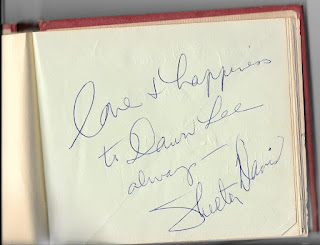 Love & happiness
to Dawn Lee
always —
Skeeter Davis